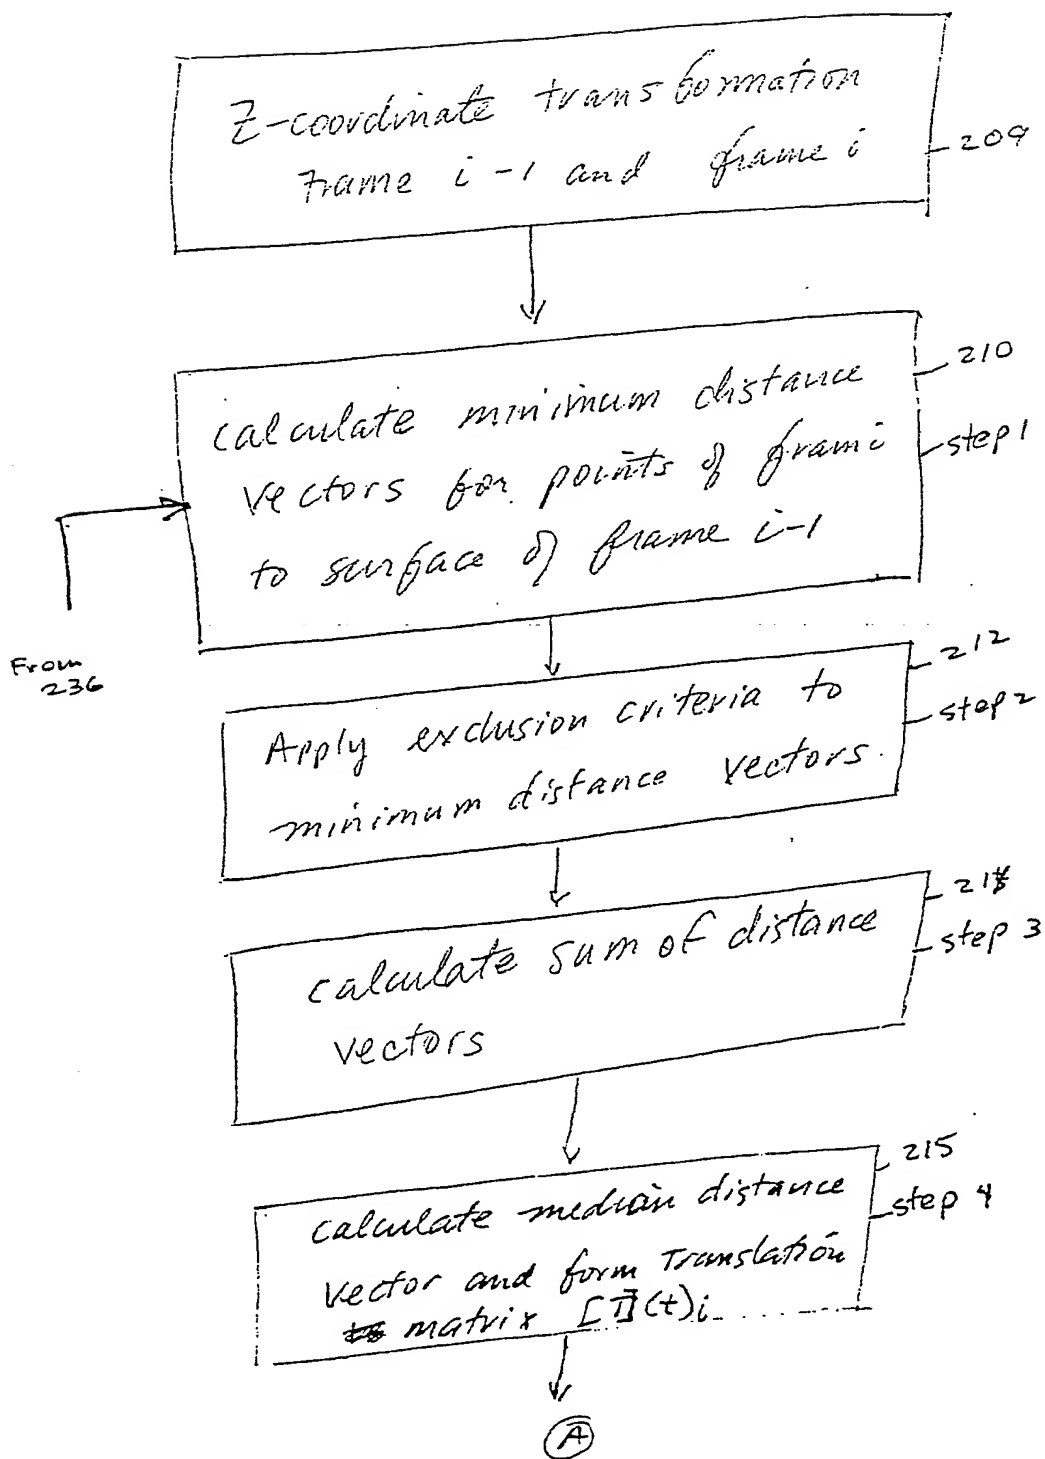 Z-coordinate transformation
Frame i-1 and frame i
209
210
calculate minimum distance
vectors for points of frami
step 1
to surface of frame i-1
From
236
212
Apply exclusion criteria to
step 2
minimum distance vectors.
calculate sum of distance
step 3
vectors
215
calculate median distance
step 4
vector and form Translation
matrix [T](t)i
A